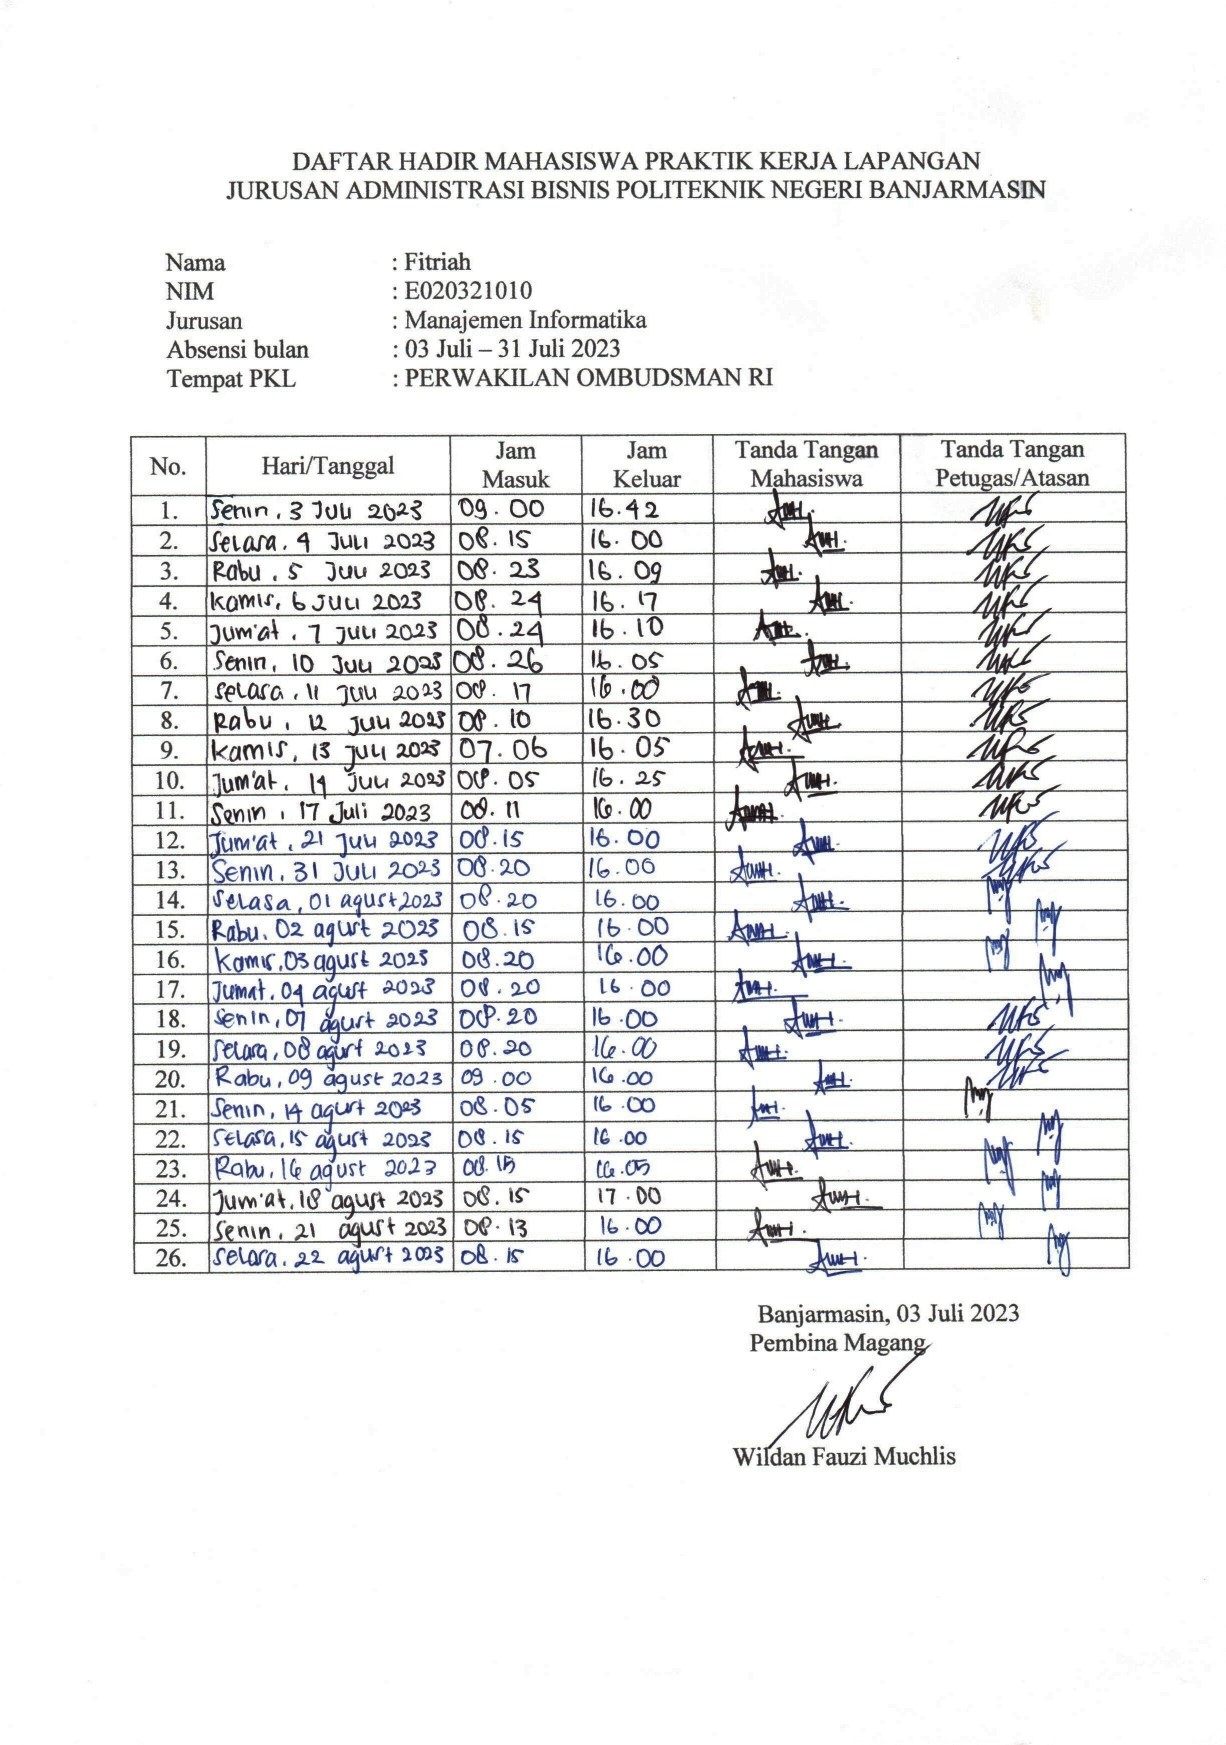 DAFTAR HADIR MAHASISWA PRAKTIK KERJA LAPANGAN
JURUSAN ADMINISTRASI BISNIS POLITEKNIK NEGERI BANJARMASIN
Nama : Fitriah
NIM : E020321010
Jurusan : Manajemen Informatika
Absensi bulan : 03 Juli – 31 Juli 2023
Tempat PKL : PERWAKILAN OMBUDSMAN RI
No. Hari/Tanggal Jam Masuk Jam Keluar Tanda Tangan Mahasiswa Tanda Tangan Petugas/Atasan
1. Senin, 3 Juli 2023 09.00 16.42
2. Selasa, 4 Juli 2023 08.15 16.00
3. Rabu, 5 Juli 2023 08.23 16.09
4. Kamis, 6 Juli 2023 08.24 16.17
5. Jum'at, 7 Juli 2023 08.24 16.10
6. Senin, 10 Juli 2023 08.26 16.05
7. Selasa, 11 Juli 2023 08.17 16.00
8. Rabu, 12 Juli 2023 08.10 16.30
9. Kamis, 13 Juli 2023 07.06 16.05
10. Jum'at, 14 Juli 2023 08.05 16.25
11. Senin, 17 Juli 2023 08.11 16.00
12. Jum'at, 21 Juli 2023 08.15 16.00
13. Senin, 31 Juli 2023 08.20 16.00
14. Selasa, 01 agust 2023 08.20 16.00
15. Rabu, 02 agust 2023 08.15 16.00
16. Kamis, 03 agust 2023 08.20 16.00
17. Jumat, 04 agust 2023 08.20 16.00
18. Senin, 07 agust 2023 08.20 16.00
19. Selasa, 08 agust 2023 08.20 16.00
20. Rabu, 09 agust 2023 09.00 16.00
21. Senin, 14 agust 2023 08.05 16.00
22. Selasa, 15 agust 2023 08.15 16.00
23. Rabu, 16 agust 2023 08.15 16.05
24. Jum'at, 18 agust 2023 08.15 17.00
25. Senin, 21 agust 2023 08.13 16.00
26. Selasa, 22 agust 2023 08.15 16.00
Banjarmasin, 03 Juli 2023
Pembina Magang
Wildan Fauzi Muchlis